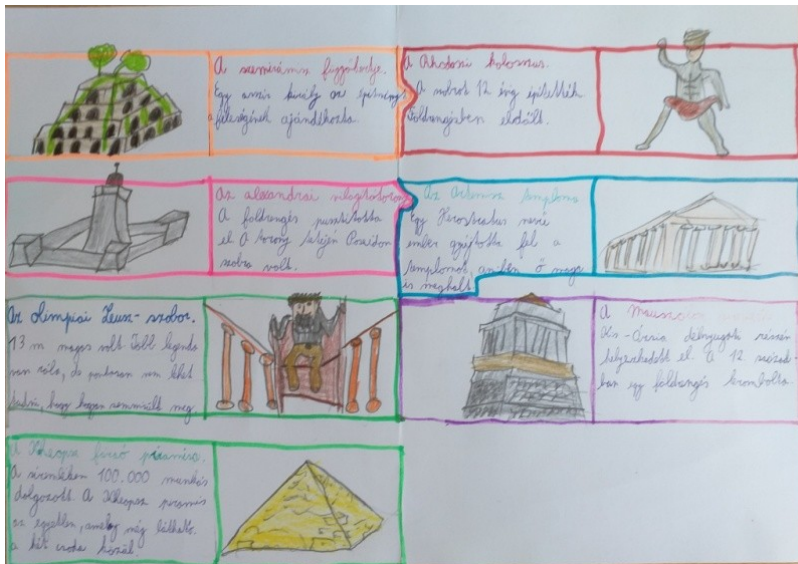 A szemirámisz függőkertje.
Egy asszír király az építményt
feleségének ajándékozta.
A Rhodoszi kolosszus.
A szobrot 12 évig építették.
Földrengésben eldőlt.
Az alexandriai világítótorony
A földrengés pusztította
el. A torony tetején Poseidon
szobra volt.
Az Artemisz temploma
Egy Herostratus nevű
ember gyújtotta fel a
templomot, amiben ő maga
is meghalt.
Az olimpiai Zeusz-szobor.
13 m magas volt. Több legenda
van róla, de pontosan nem lehet
tudni, hogy hogyan semmisült meg.
A Mauszóleum
Kis-Ázsia délnyugati részén
helyezkedett el. A 12. század-
ban egy földrengés lerombolta.
A Kheopsz fáraó piramisa.
A síremléken 100.000 munkás
dolgozott. A Kheopsz piramis
az egyetlen, amely még látható
a hét csoda közül.